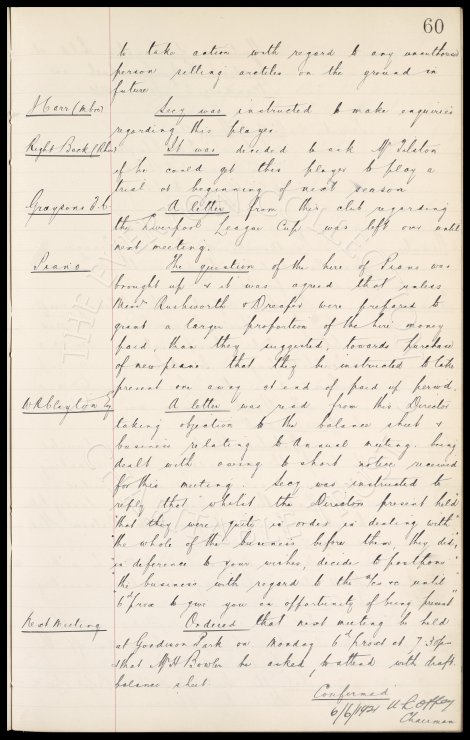 60
to take action with regard to any unauthorised
person selling articles on the ground in
future
Carr (M'boro) Secy was instructed to make enquiries
regarding this player
Right Back (Rhyl) It was decided to ask Mr Elston
if he could get this player to play a
trial at beginning of next season
Graysons F.C. A letter from this club regarding
the Liverpool League Cup was left over until
next meeting.
Piano The question of the hire of Piano was
brought up & it was agreed that unless
Messrs Rushworth & Dreaper were prepared to
grant a larger proportion of the hire money
paid, than they suggested, towards purchase
of new piano. that they be instructed to take
present one away at end of paid up period.
W R Clayton Esq A letter was read from this Director
taking objection to the balance sheet &
business relating to Annual meeting being
dealt with owing to short notice received
for this meeting. Secy was instructed to
reply that "whilst the Directors present held"
"that they were quite in order in dealing with"
"the whole of the business before them they did,"
"in deference to your wishes, decide to postpone"
"the business with regard to the a/cs &c until"
"6th prox to give you an opportunity of being present"
Next Meeting Ordered that next meeting be held
at Goodison Park on Monday 6th prox at 7.30pm
& that Mr H Bowler be asked to attend with draft
balance sheet
Confirmed
6/6/1921 W C Cuffey
Chairman
THE EVERTON